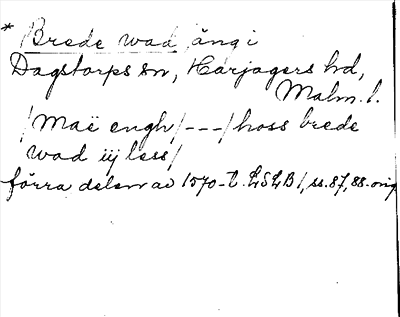 * Brede wad, äng i
Dagstorps sn, Harjagers hd,
Malm. l.
/Maë engh/ - - - /hoss brede
wad iij less/
förra delen av 1570-t. LSLB1, ss. 87, 88. orig.